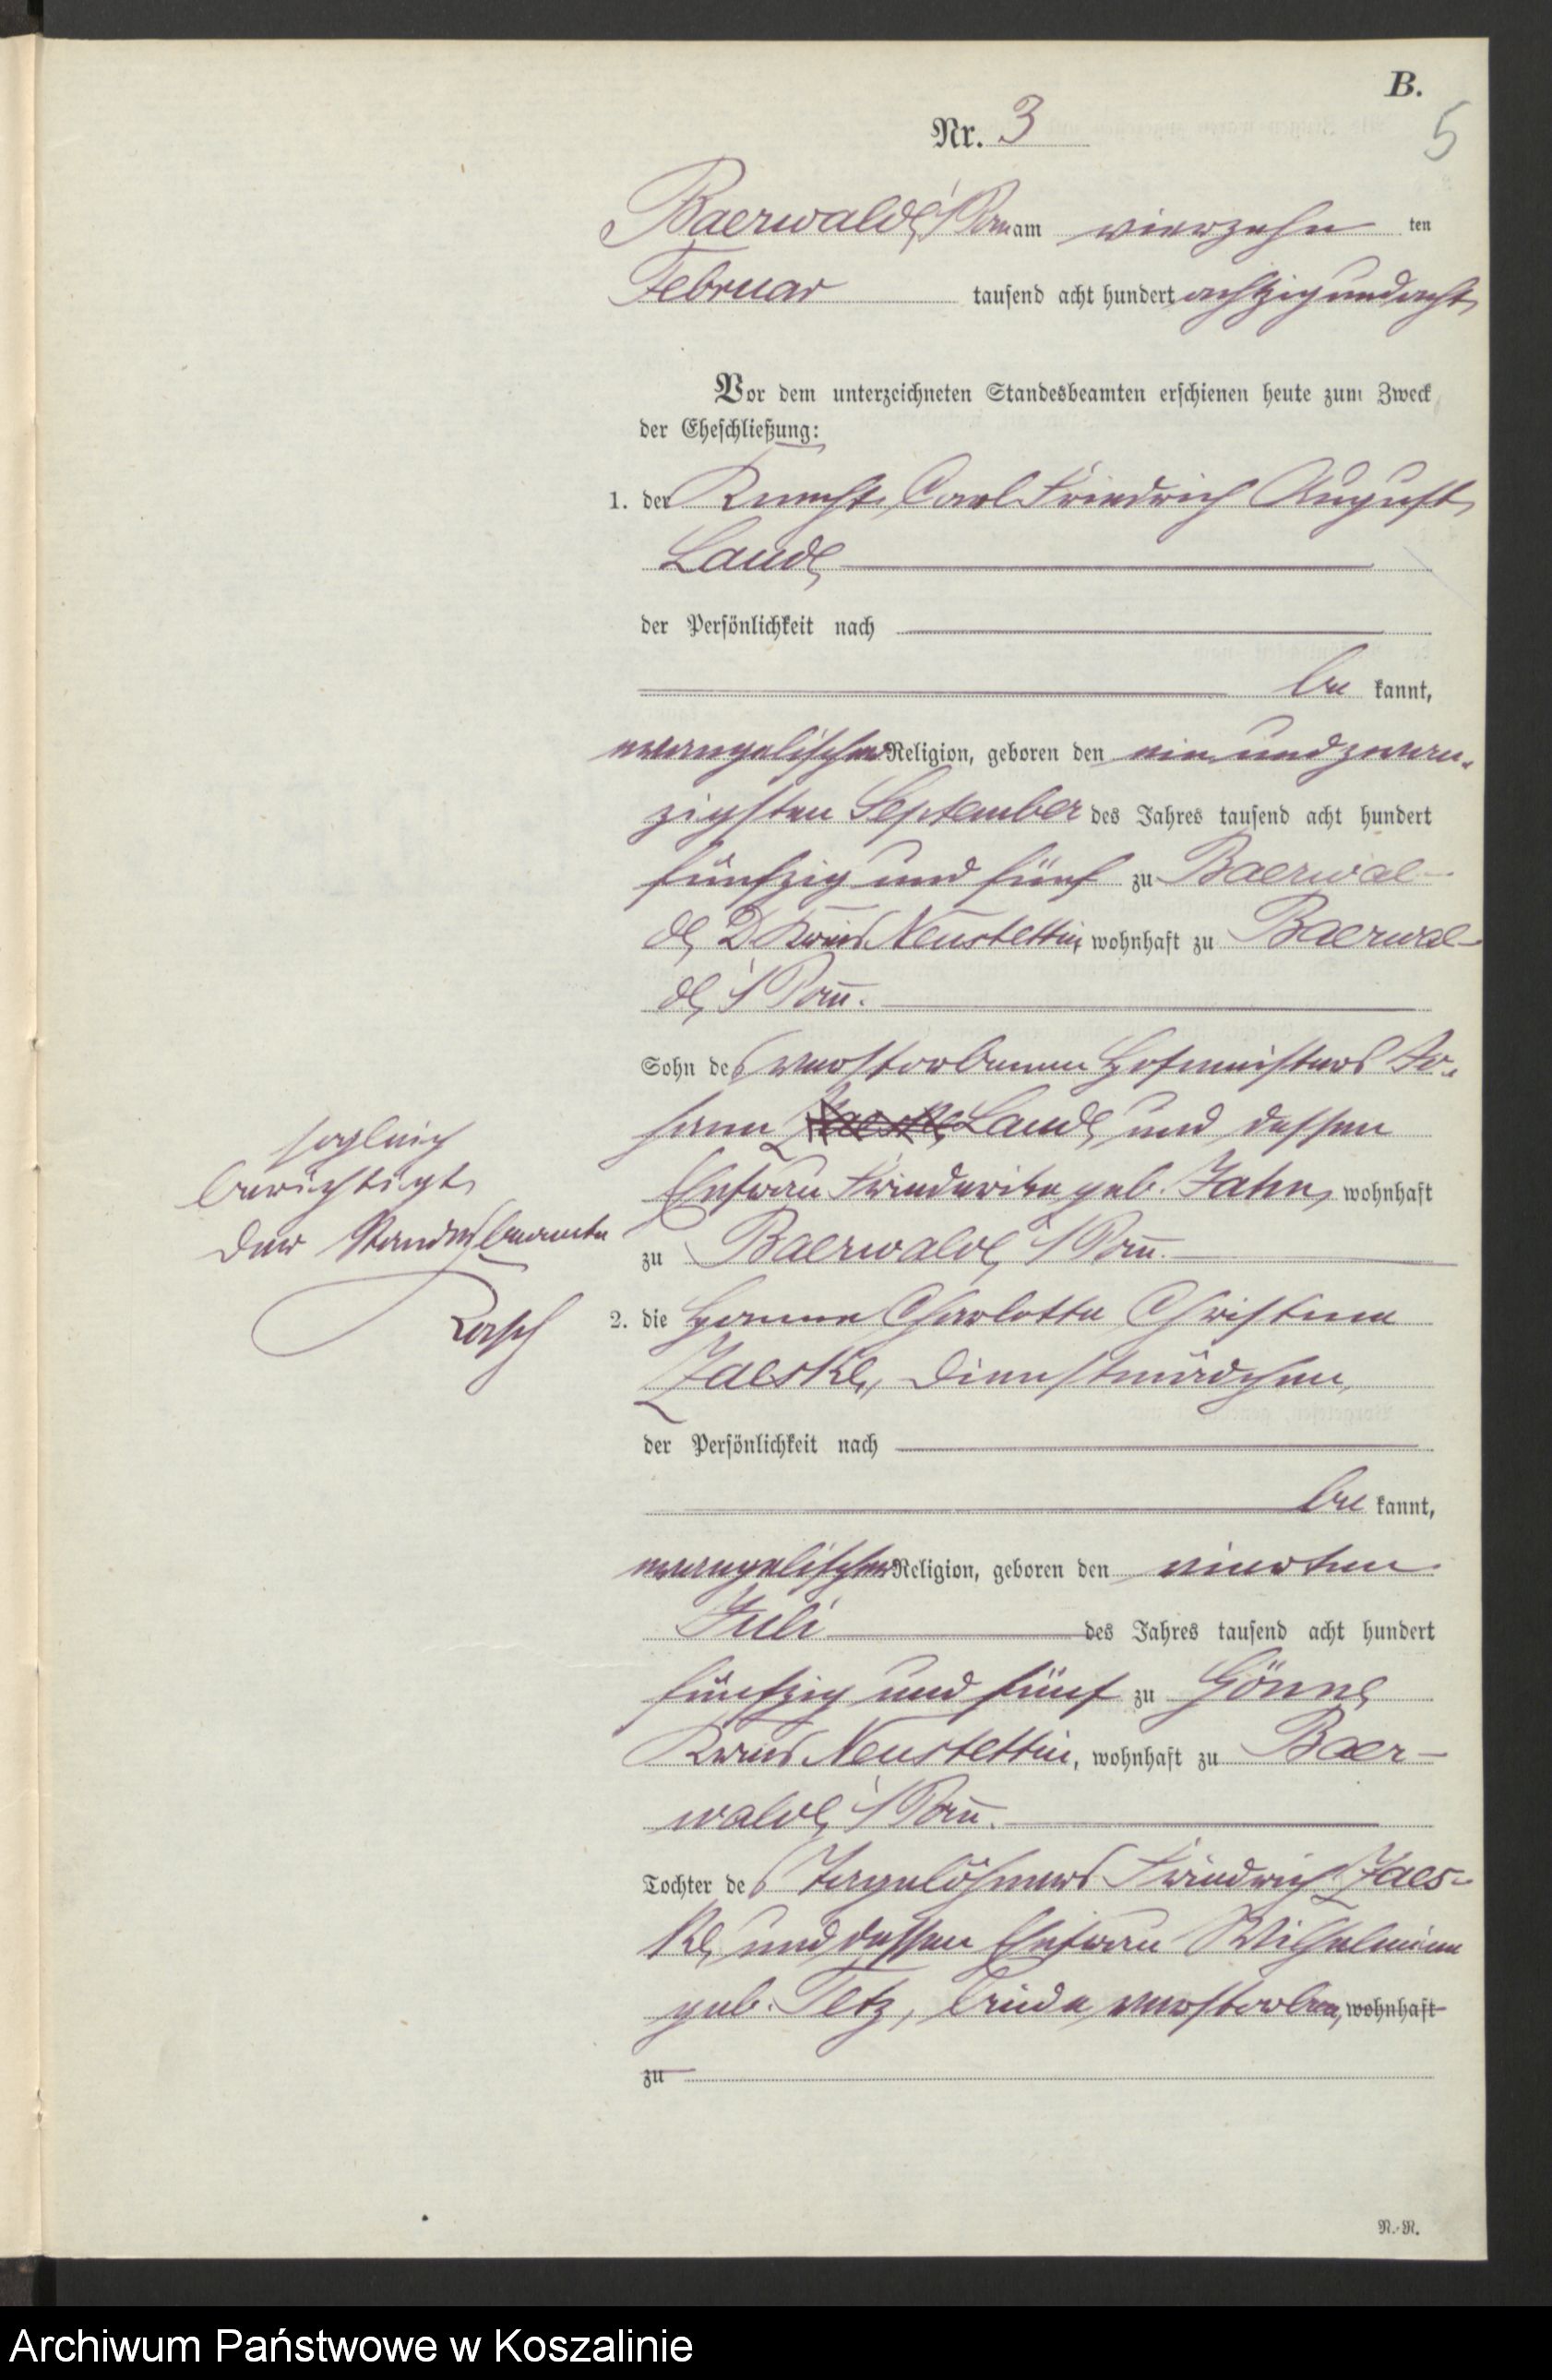 B.
5
Nr. 3
Baerwalde i/Pom am vierzehn ten
Februar tausend acht hundert achtzig und acht
Vor dem unterzeichneten Standesbeamten erschienen heute zum Zweck
der Eheschließung:
1. der Knecht Carl Friedrich August
Laude
der Persönlichkeit nach
be kannt,
evangelischer Religion, geboren den ein und zwan-
zigsten September des Jahres tausend acht hundert
fünfzig und fünf zu Baerwal-
de, D. Kreis Neustettin, wohnhaft zu Baerwal-
de i/Pom.
Sohn des verstorbenen Hofmeisters Jo-
hann Zaeske Laude und dessen
Ehefrau Friederike geb. Jahn, wohnhaft
zu Baerwalde i/Pom.
sogleich
berichtigt
Der Standesbeamte
Rasch
2. die Hanne Charlotte Christine
Zaeske, Dienstmädchen,
der Persönlichkeit nach
be kannt,
evangelischer Religion, geboren den vierten
Juli des Jahres tausend acht hundert
fünfzig und fünf zu Gönne
Kreis Neustettin, wohnhaft zu Baer-
walde i/Pom.
Tochter des Tagelöhners Friedrich Zaes-
ke und dessen Ehefrau Wilhelmine
geb. Tetz, beide verstorben, wohnhaft
zu
N.-N.
Archiwum Państwowe w Koszalinie